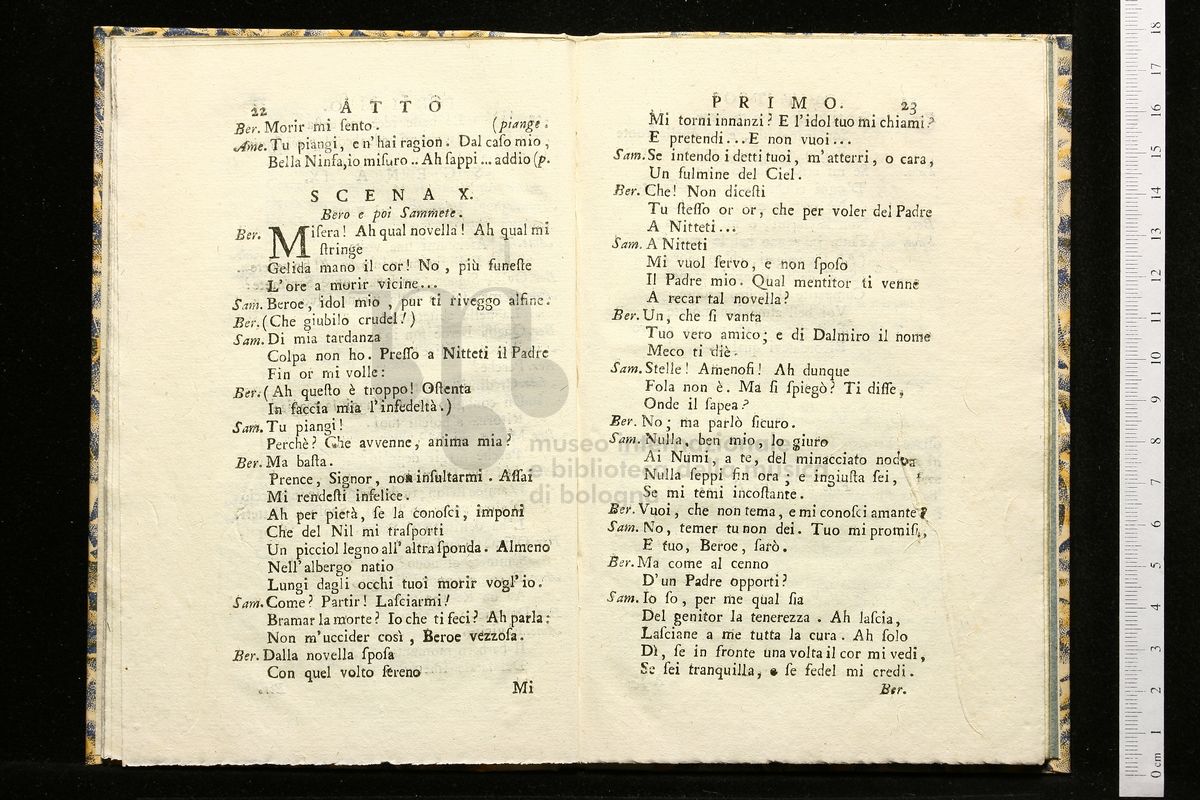 22 ATTO
Ber. Morir mi ſento. (piange.
Ame. Tu piangi, e n'hai ragion. Dal caſo mio,
Bella Ninfa, io miſuro .. Ah ſappi ... addio (p.
SCENA X.
Bero e poi Sammete.
Ber. Miſera! Ah qual novella! Ah qual mi
ſtringe
Gelida mano il cor! No, più funeſte
L'ore a morir vicine...
Sam. Beroe, idol mio, pur ti riveggo alfine.
Ber. (Che giubilo crudel!)
Sam. Di mia tardanza
Colpa non ho. Preſſo a Nitteti il Padre
Fin or mi volle:
Ber. (Ah queſto è troppo! Oſtenta
In faccia mia l'infedeltà.)
Sam. Tu piangi!
Perchè? Che avvenne, anima mia?
Ber. Ma baſta.
Prence, Signor, non inſultarmi. Aſſai
Mi rendeſti infelice.
Ah per pietà, ſe la conoſci, imponi
Che del Nil mi traſporti
Un picciol legno all' altra ſponda. Almeno
Nell' albergo natio
Lungi dagli occhi tuoi morir vogl' io.
Sam. Come? Partir! Laſciarmi!
Bramar la morte? Io che ti feci? Ah parla:
Non m'uccider così, Beroe vezzoſa.
Ber. Dalla novella ſpoſa
Con quel volto ſereno
Mi
PRIMO. 23
Mi torni innanzi? E l'idol tuo mi chiami?
E pretendi...E non vuoi...
Sam. Se intendo i detti tuoi, m'atterri, o cara,
Un fulmine del Ciel.
Ber. Che! Non diceſti
Tu ſteſſo or or, che per voler del Padre
A Nitteti...
Sam. A Nitteti
Mi vuol ſervo, e non ſpoſo
Il Padre mio. Qual mentitor ti venne
A recar tal novella?
Ber. Un, che ſi vanta
Tuo vero amico; e di Dalmiro il nome
Meco ti diè.
Sam. Stelle! Amenofi! Ah dunque
Fola non è. Ma ſi ſpiegò? Ti diſſe,
Onde il ſapea?
Ber. No; ma parlò ſicuro.
Sam. Nulla, ben mio, lo giuro
Ai Numi, a te, del minacciato nodo
Nulla ſeppi fin ora; e ingiuſta ſei,
Se mi temi incoſtante.
Ber. Vuoi, che non tema, e mi conoſci amante?
Sam. No, temer tu non dei. Tuo mi promiſi,
E tuo, Beroe, ſarò.
Ber. Ma come al cenno
D'un Padre opporti?
Sam. Io ſo, per me qual ſia
Del genitor la tenerezza. Ah laſcia,
Laſciane a me tutta la cura. Ah ſolo
Dì, ſe in fronte una volta il cor mi vedi,
Se ſei tranquilla, e ſe fedel mi credi.
Ber.
museo internazionale
e biblioteca della musica
di bologna
0 cm 1 2 3 4 5 6 7 8 9 10 11 12 13 14 15 16 17 18